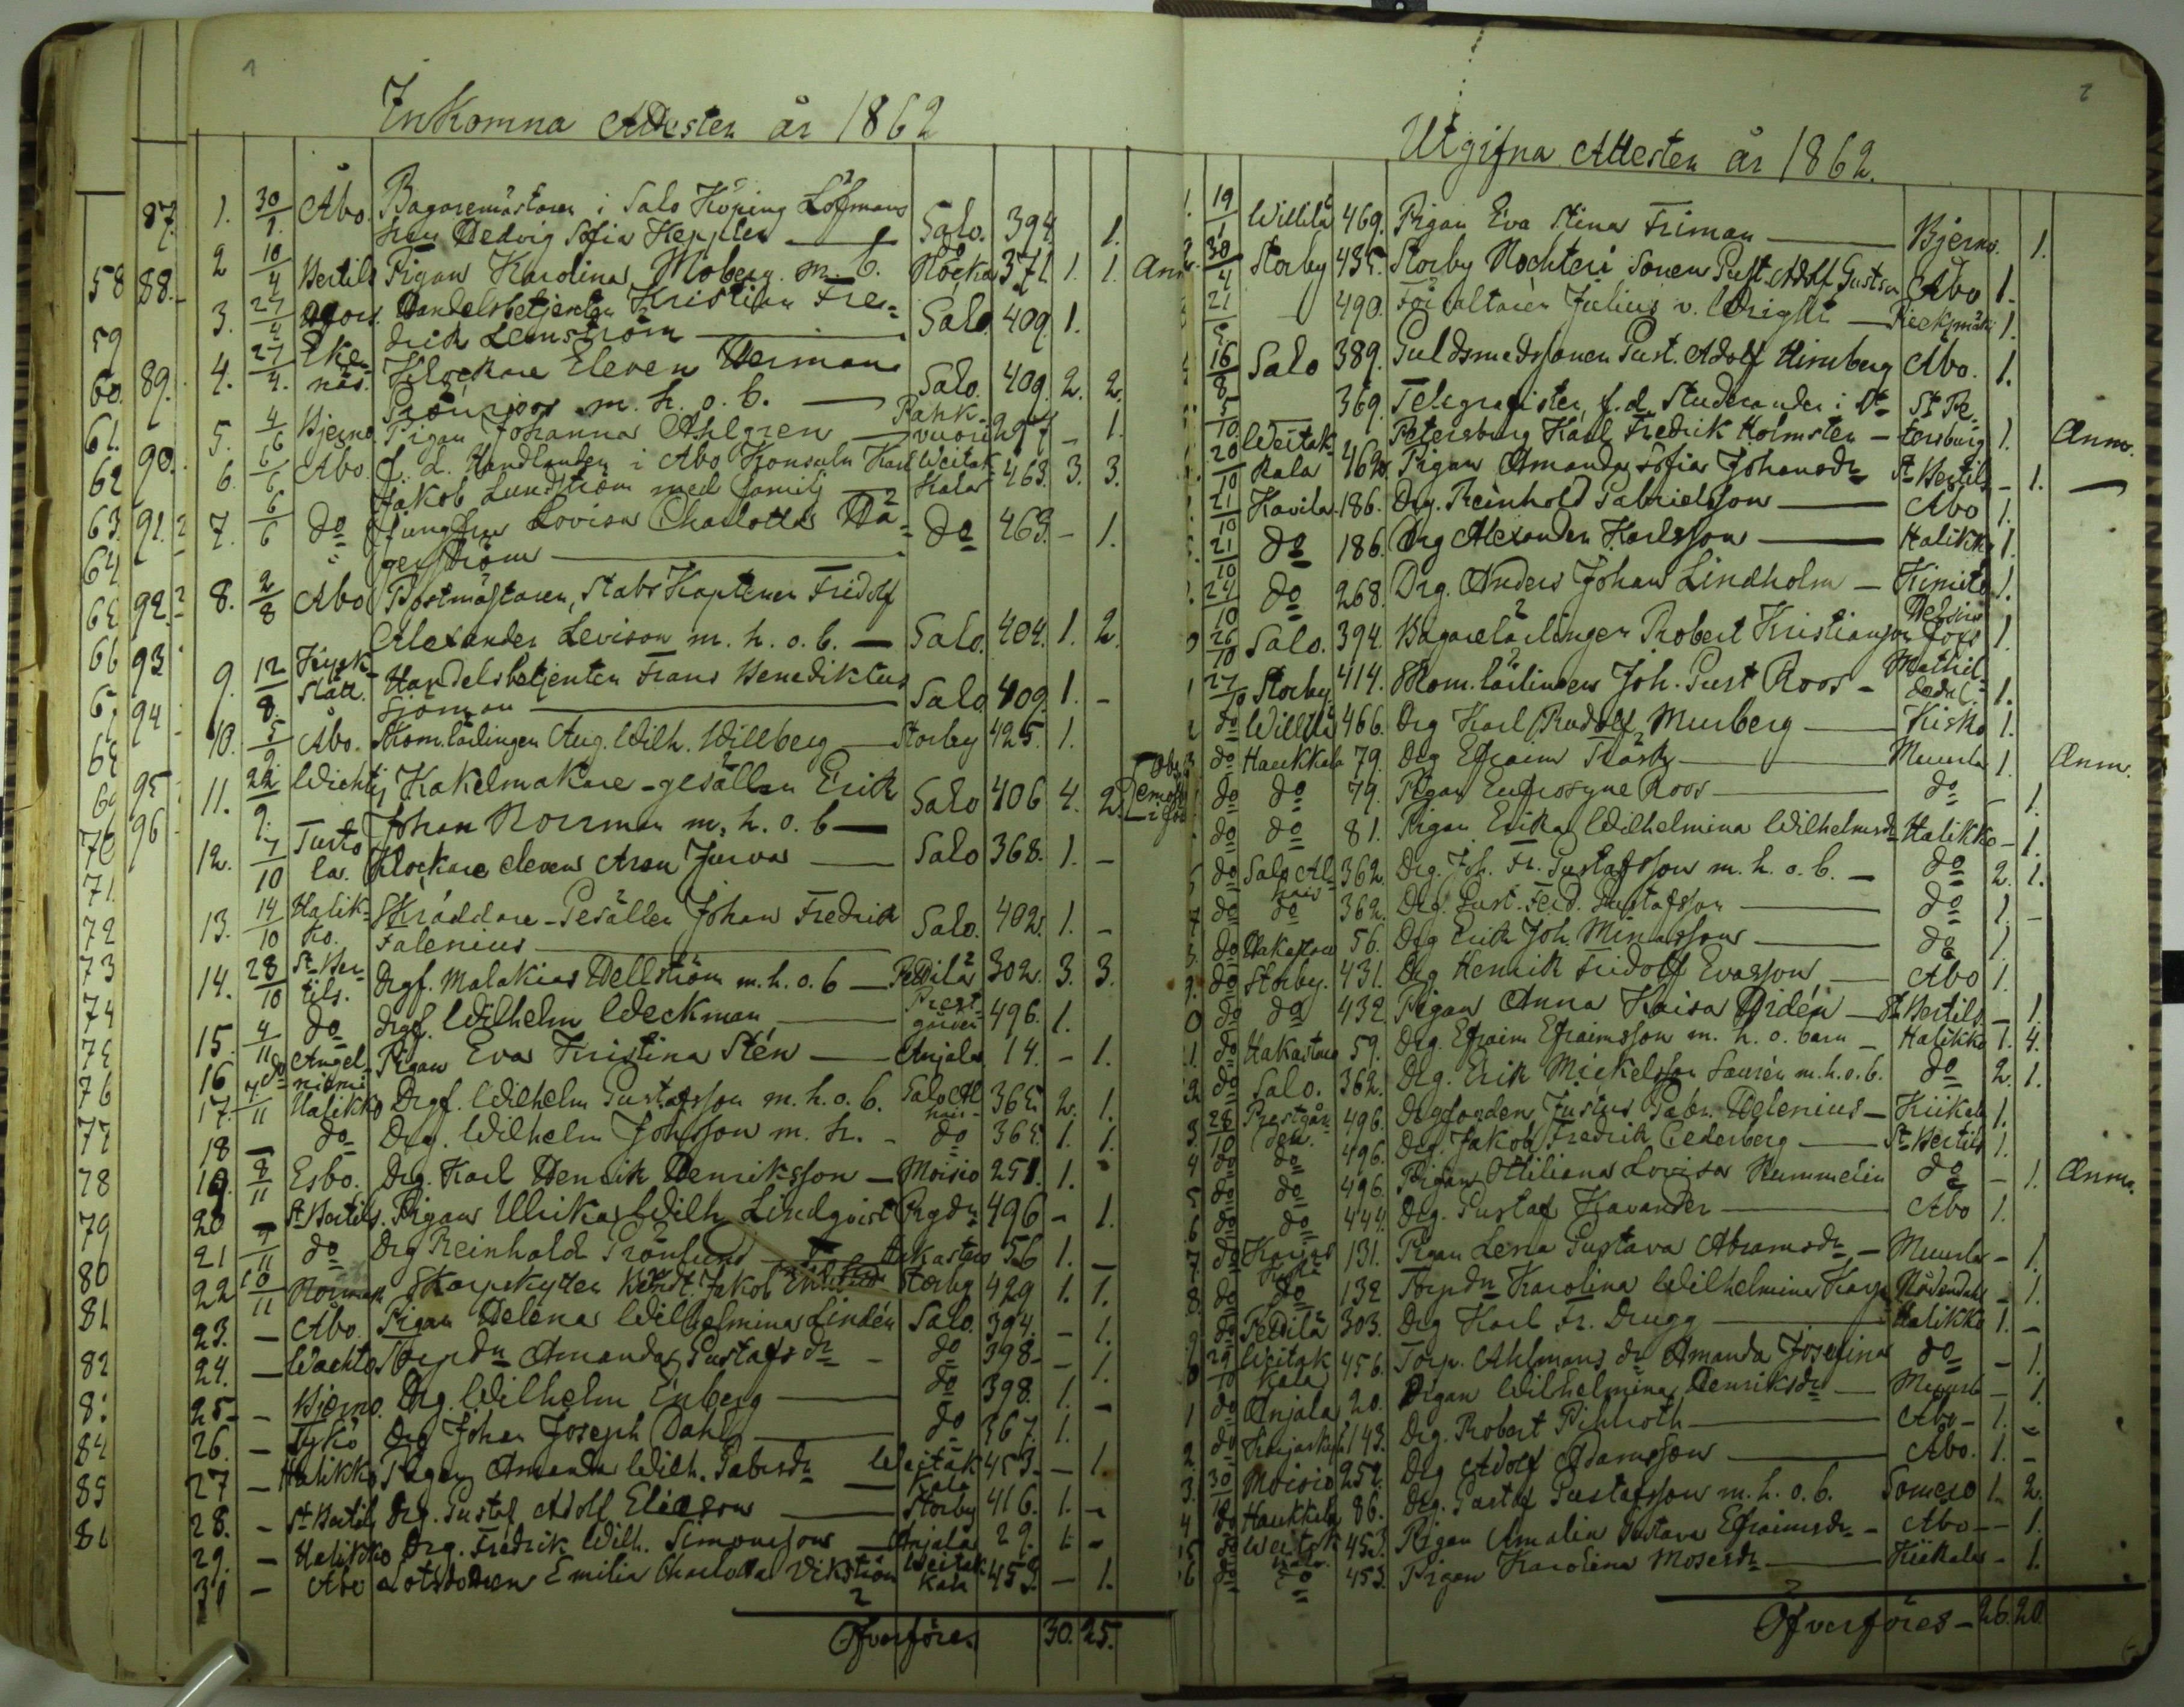 1
Inkomna Attester år 1862
1. 30/1. Åbo. Bagaremästaren i Salo Köping Löfmans
hru Hedvig Sofia Keppler — Salo. 394. 1.
2 10/4 Bertils Pigan Karolina Moberg m. b. 371. 1. 1. Anm
3. 27/4 Handelsbetjenten Kristian Fre-
drik Lemström — Salo. 409. 1.
4. 27/4. Eke-
näs. Klockare Eleven Herman
Grönroos m. h. o. b. — Salo. 409. 2. 2.
5. 4/6 Bjerno Pigan Johanna Ahlgren — Pahk-
vuori 297 - 1.
6. 6/6 Åbo. f. d. Handlanden i Åbo Konsuln Karl
Jakob Lundström med familj — Weitak
kala 463. 3. 3.
7. 6/6 do Jungfru Lovisa Charlotta Hä-
gerström — do 463. - 1.
8. 2/8 Åbo Postmästaren, Stabs Kaptenen Fridolf
Alexander Levison m. h. o. b. — Salo. 404. 1. 2.
9. 12/8. Kyrk-
slätt. Handelsbetjenten Frans Benediktus
Sjöman — Salo 409. 1. -
10. 5/9 Åbo. Skom.lärlingen Aug. Wilh. Willberg — Storby 425. 1.
11. 22/9. Wichtis Kakelmakare-gesällen Erik
Johan Norrman m. h. o. b — Salo 406 4. 2.
12. 7/10 Tusto
la. Klockare eleven Aron Jurva — Salo 368. 1. -
13. 14/10 Halik-
ko. Skräddare-Gesällen Johan Fredrik
Falenius — Salo. 402. 1. -
14. 28/10 St Ber-
tils. Drgf. Malakias Hellström m. h. o. b — Pettilä 302. 3. 3.
15. 4/11 do drgf. Wilhelm Weckman — Prest-
gården 496. 1.
16 do Angel-
niemi Pigan Eva Kristina Stén — Anjala 14. - 1.
17. 7/11 Halikko Drgf. Wilhelm Gustafsson m. h. o. b. Salo Al
hais 365. 2. 1.
18 — do Drg. Wilhelm Johsson m. h. - do 365. 1. 1.
19. 8/11 Esbo. Drg. Karl Henrik Henriksson — Moisio 251. 1.
20 — St Bertils. Pigan Ulrika Wilh. Lindqvist Prgdn 496 - 1.
21 9/11 do Drg Reinhold Grönlund — Hakastaro 56 1. -
22 10/11 Skarpskytten Jakob Storby 429 1. 1.
23. — Åbo. Pigan Helena Wilhelmina Lindén Salo. 394. - 1.
24. — Wachto Torpdn Amanda Gustafsdr - do 398 - 1.
25 - - Bjerno. Drg. Wilhelm Enberg — do 398. 1. -
26. — Tykö Drg Johan Joseph Dahl — do 367. 1.
27 — Halikko Pigan Amanda Wilh. Gabrsdr — Weitak
kala 453. - 1.
28. - St Bertils Drg. Gustaf Adolf Eliasson — Storby 416. 1. -
29. — Halikko Drg. Fredrik Wilh. Simonsson — Anjala 29. 1. -
30 — Åbo Lotsdottren Emilia Charlotta Vikström Weitak
kala 453. - 1.
Öfverföres 30. 25.
2
Utgifna Attester år 1862.
19/1 Willilä 469. Pigan Eva Stina Friman — Bjerno. 1.
30/4 Storby 435. Storby Nochteri Sonen Gust. Adolf Gustsn Åbo 1.
21/5 — 490. Förvaltaren Julius v. Wright — 1.
16/8 Salo 389. Guldsmedssonen Gust. Adolf Hirnberg Åbo. 1.
5/10 369. Telegrafisten, f. d. Studeranden i St
Petersburg Karl Fredrik Holmsten — St Pe-
tersburg 1. Anm.
20/10 Weitak
kala 462. Pigan Amanda Sofia Johansdr St Bertils - 1.
21/10 Kavila 186. Drg. Reinhold Gabrielsson — Åbo 1.
21/10 do 186. Drg Alexander Karlsson — Halikko 1.
24/10 do 268. Drg. Anders Johan Lindholm — Kimito 1.
26/10 Salo. 394. Bagarelärlingen Robert Kristiansson Helsing
fors 1.
27/10 Storby 414. Skom.lärlingen Joh. Gust Roos - Mathil-
dedal 1.
do Willilä 466. Drg Karl Rudolf Murberg — Kisko 1.
do Haukkala 79. Drg Efraim Träsk — Muurla 1. Anm.
do do 79. Pigan Eufrosyne Roos — do - 1.
do do 81. Pigan Erika Wilhelmina Wilhelmsdr Halikko - 1.
do Salo Al-
hais 362. Drg. Joh. Fr. Gustafsson m. h. o. b. — do 2. 1.
do do 362. Drg. Gust. Ferd. Gustafsson — do 1. -
do Hakastaro 56. Drg Erik Joh. Minasson — do 1.
do Storby. 431. Drg Henrik Fridolf Evasson — Åbo 1.
do do 432 Pigan Anna Kaisa Widén — St Bertils - 1.
do Hakastaro 59. Drg. Efraim Efraimsson m. h. o. barn — Halikko 1. 4.
do Salo. 362. Drg. Erik Mickelsson Saurén m. h. o. b. do 2. 1.
28/10 Prestgår-
den. 496. Drgfogden Justus Gabr. Helenius — Kiikala 1.
do do 496. Drg. Jakob Fredrik Cederberg — St Bertils 1.
do do 496. Pigan Otiliana Lovisa Nummelin do - 1. Anm.
do do 444. Drg. Gustaf Kavander — Åbo 1.
do 131. Pigan Lena Gustava Abramsdr — Muurla - 1.
do do 132 Torpdn Karolina Wilhelmina Karp Nådendal - 1.
do Pettilä 303. Drg Karl Fr. Drugg — Halikko 1. -
29/10 Weitak
kala 456. Torp. Ahlmans dr Amanda Josefina do - 1.
do Anjala 20. Pigan Wilhelmina Henriksdr — Muurla - 1.
do 143. Drg. Robert — Åbo - 1. -
30/10 Moisio 252. Drg Adolf Adamsson — Åbo. 1. -
do Haukkala 86. Drg. Gustaf Gustafsson m. h. o. b. Somero 1. 2.
do Weitak
kala 453. Pigan Amalia Gustava Efraimsdr - Åbo - 1.
do do 453. Pigan Karolina Mosesdr — Kiikala - 1.
Öfverföres — 26. 20.